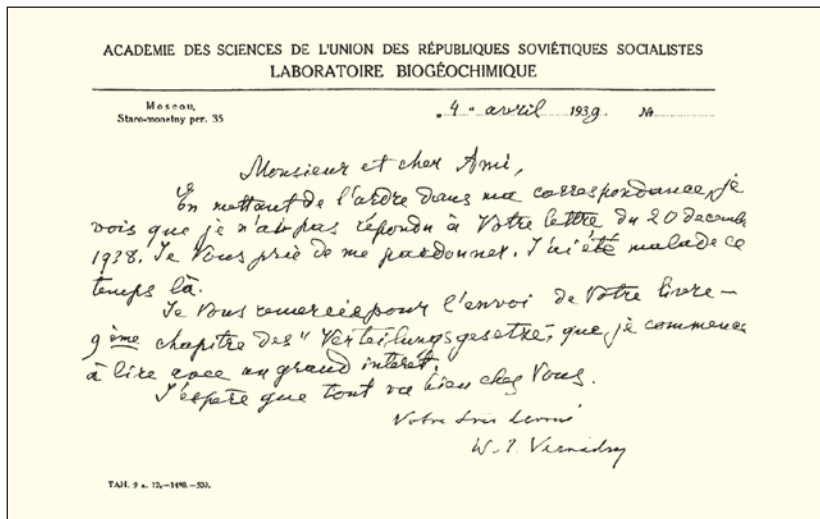 ACADÉMIE DES SCIENCES DE L'UNION DES RÉPUBLIQUES SOVIÉTIQUES SOCIALISTES
LABORATOIRE BIOGÉOCHIMIQUE
Moscou,
Staro-monetny per. 35
"4" avril 1939. №
Monsieur et cher Ami,
En mettant de l'ordre dans ma correspondance, je
vois que je n'ai pas répondu à Votre lettre du 20 decemb
1938. Je Vous prie de me pardonner. J'ai été malade ce
temps là.
Je Vous remercie pour l'envoi de Votre livre –
9ème chapitre des "Verteilungsgesetze", que je commence
à lire avec un grand intérêt.
J'espère que tout va bien chez Vous.
Votre très
W. I. Vernadsky